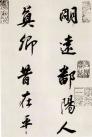 明遠鄱陽人
真卿昔在平